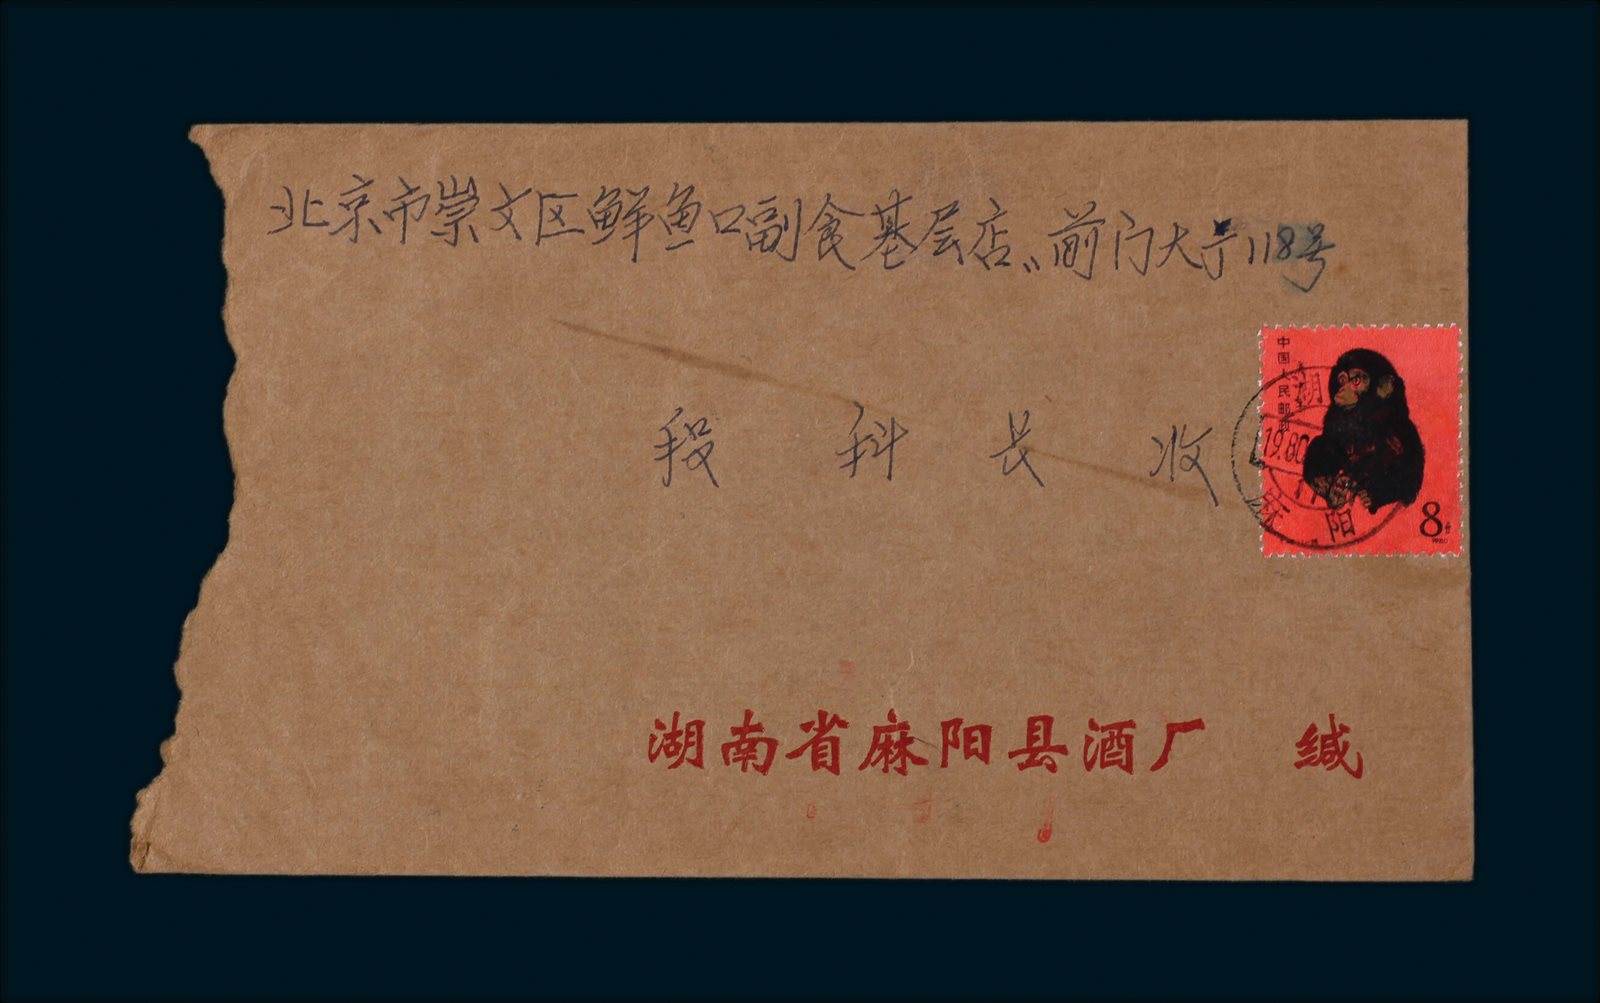 北京市崇文区鲜鱼口副食基层店、前门大亍118号
段 科 长 收
中国人民邮政
湖
19.80
麻 阳
8分
1980
湖南省麻阳县酒厂 缄